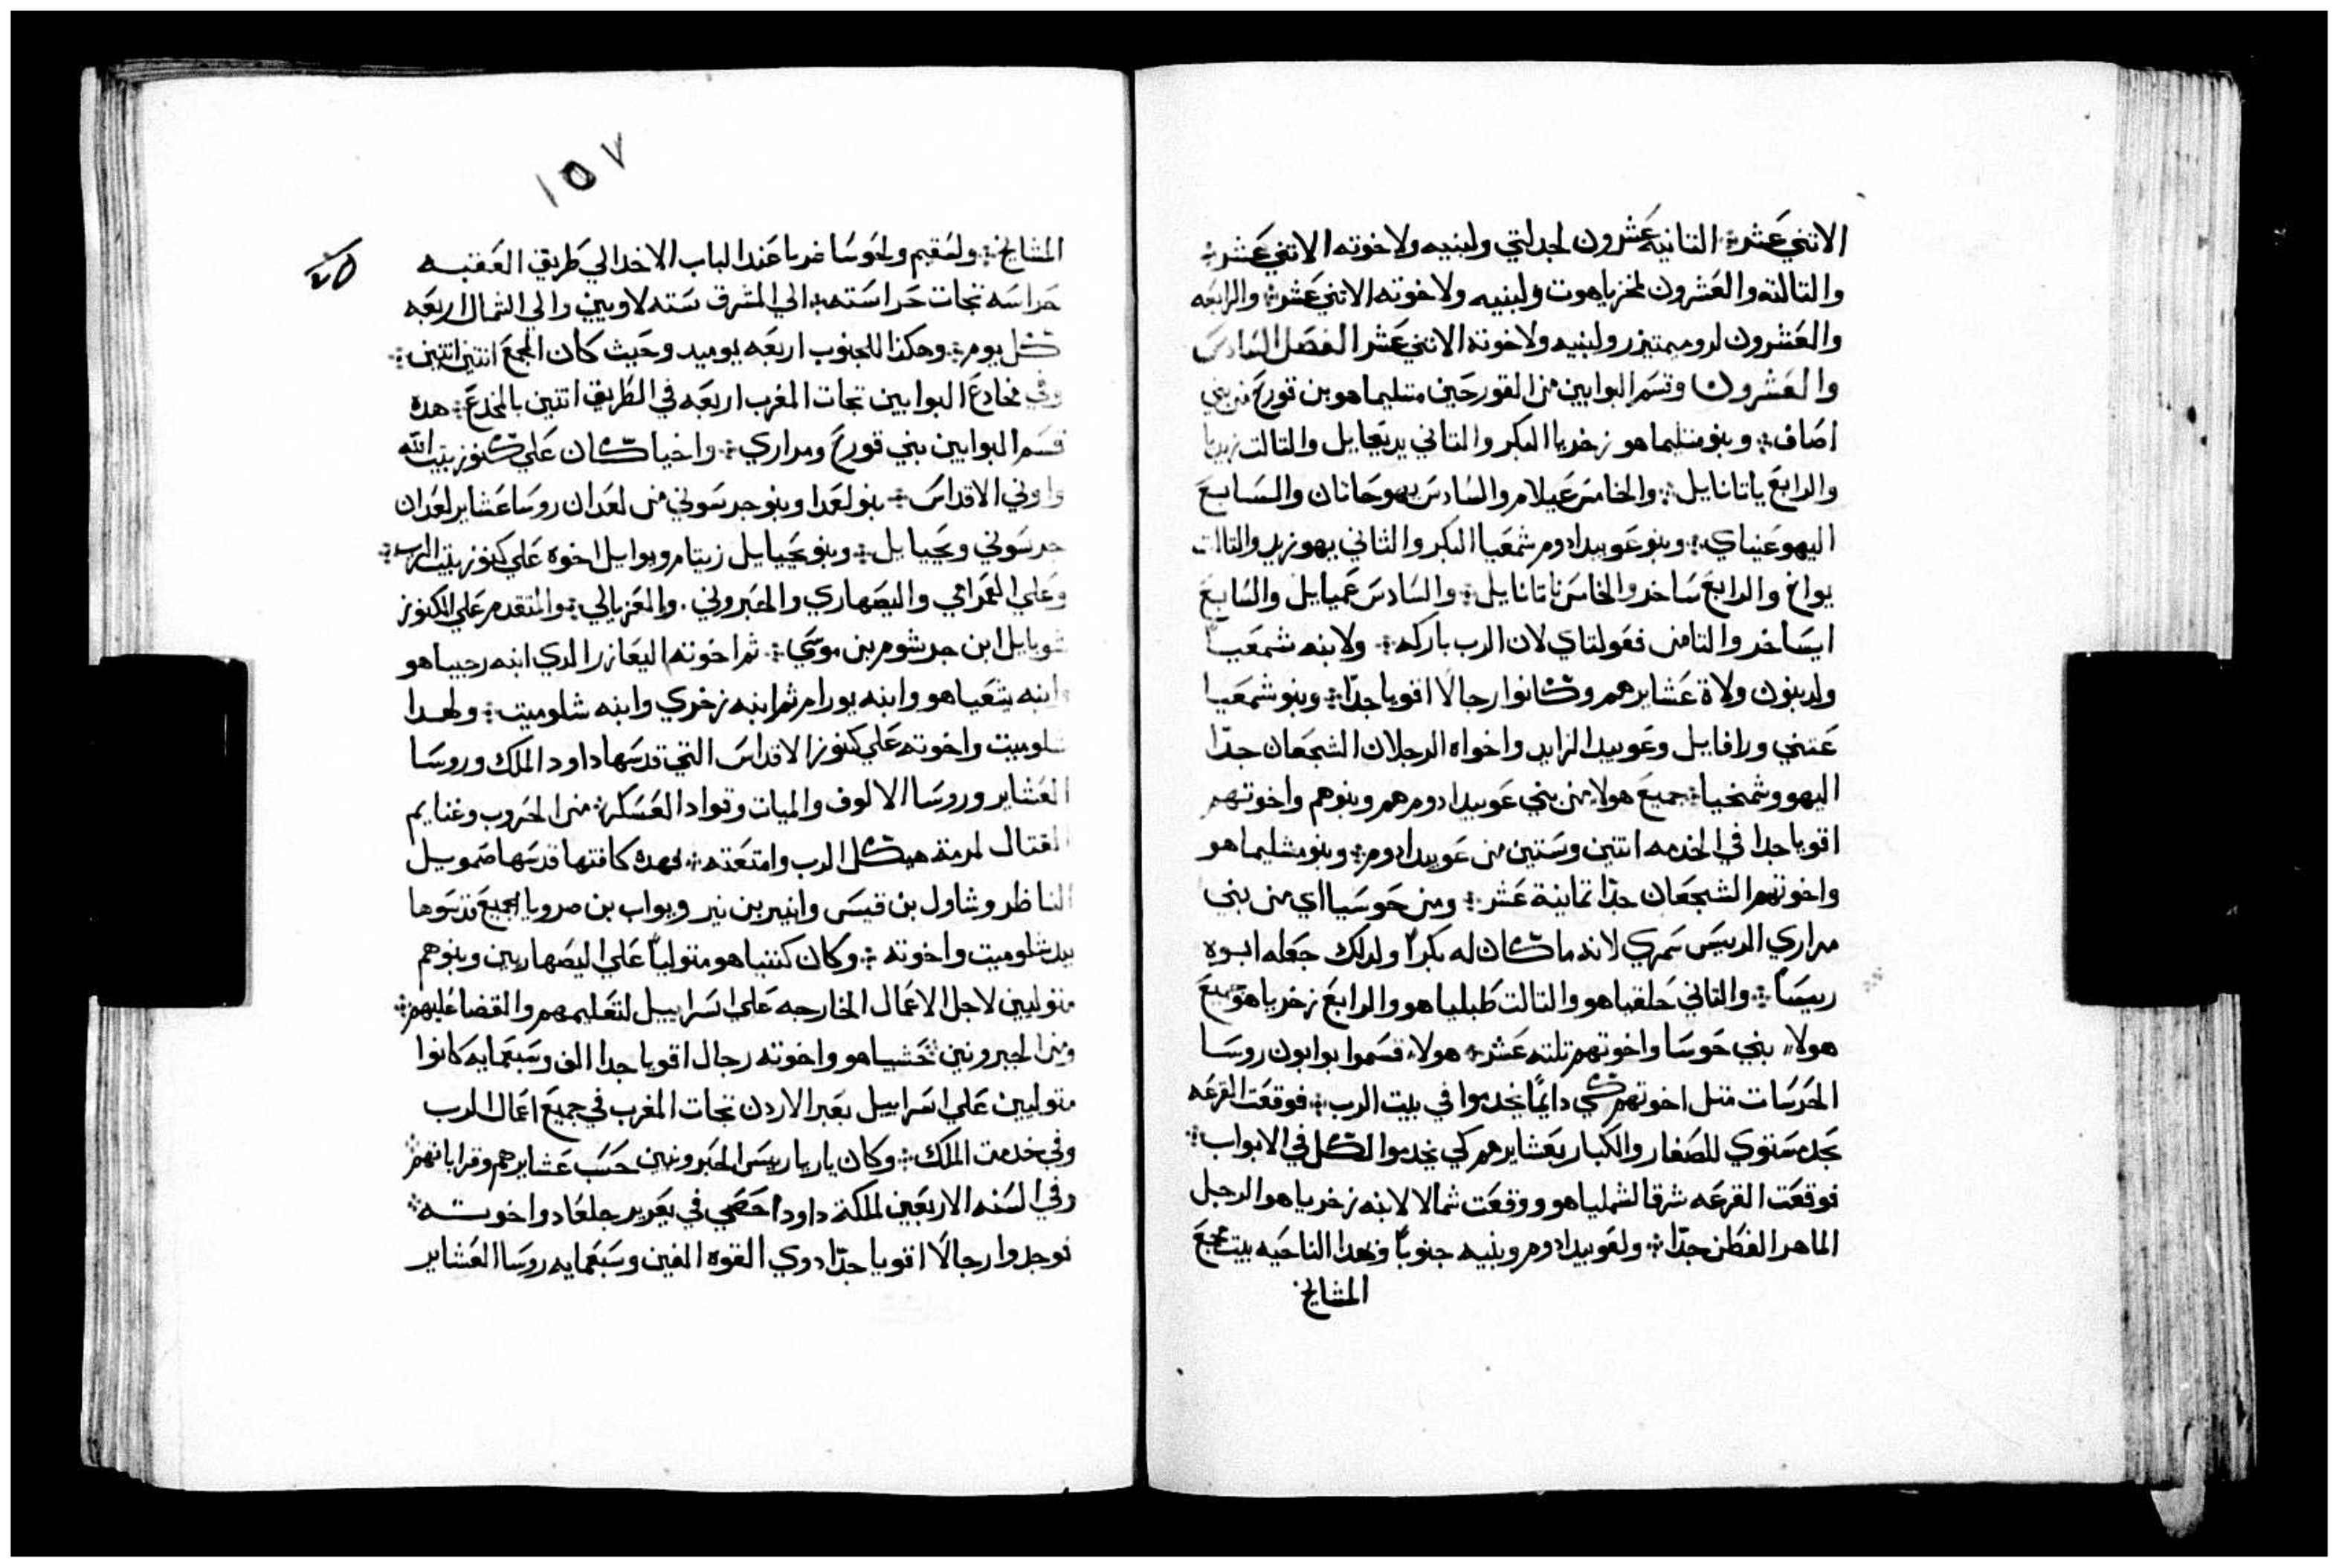 الاتني عشر؛ التانيه عشرون لجدلتي ولبنيه ولاخوته الاتني عشر؛
والتالته والعشرون لمحزياهوت ولبنيه ولاخوته الاتني عشر؛ والرابعه
والعشرون لروممتيزر ولبنيه ولاخوته الاتني عشر الفصل السادس
والعشرون وقسم البوابين من القورحيين متليماهو بن قورح من بني
اصاف؛ وبنو متليماهو زخريا البكر والتاني يديعايل والتالت زبديا
والرابع ياتانايل؛ والخامس عيلام والسادس يهوحانان والسابع
اليهوعنياي؛ وبنو عوبيدادوم شمعيا البكر والتاني يهوزيد والتالت
يواخ والرابع ساخر والخامس ناتانايل؛ والسادس عميايل والسابع
ايساخر والتامن فعولتاي لان الرب باركه؛ ولابنه شمعيا
ولد بنون ولاة عشايرهم وكانوا رجالا اقويا جدا؛ وبنو شمعيا
عتني ورافايل وعوبيد الزابد واخواه الرجلان الشجعان جدا
اليهو وشمخيا؛ جميع هولا من بني عوبيدادوم هم وبنوهم واخوتهم
اقويا جدا في الخدمه اتنين وستين من عوبيدادوم؛ وبنو مشليماهو
واخوتهم الشجعان جدا تمانية عشر؛ ومن حوسيا اي من بني
مراري الرييس شمري لانه ما كان له بكرا ولدلك جعله ابوه
رييسا؛ والتاني حلقياهو والتالت طبلياهو والرابع زخرياهو جميع
هولاء بني حوسا واخوتهم تلته عشر؛ هولاء قسموا بوابون روسا
الحرسات متل اخوتهم كي دايما يخدموا في بيت الرب؛ فوقعت القرعه
بجده ستوي للصغار والكبار بعشايرهم كي يخدموا الكل في الابواب؛
فوقعت القرعه شرقا لشملياهو ووقعت شمالا لابنه زخرياهو الرجل
الماهر الفطن جدا؛ ولعوبيدادوم وبنيه جنوبا وهدا الناحيه بيت مجمع
المشايخ
١٥٧
المشايخ؛ ولشقيم ولحوسا غربا عند الباب الاخد الي طريق العقبه
حراسه تجات حراسته؛ الي المشرق سته لاويين والي الشمال اربعه
كل يوم؛ وهكذا للجنوب اربعه يوميد وحيث كان المجمع اتنين اتنين؛
وفي مخادع البوابين تجات المغرب اربعه في الطريق اتنين بالمخدع؛ هده
قسم البوابين بني قورح ومراري؛ واخيا كان علي كنوز بيت الله
واوني الاقداس؛ بنو لعدا وبنو جرسوني من لعدان روسا عشاير لعدان
جرسوني ويحيايل؛ وبنو يحيايل زيتام ويوايل اخوه علي كنوز بيت الرب؛
وعلي العمرامي واليصهاري والحبروني. والعزيالي؛ والمتقدم علي الكنوز
شوبايل ابن جرشوم بن موسي؛ تم اخوته اليعازر الدي ابنه رحبياهو
وابنه يشعياهو وابنه يورام تم ابنه زخري وابنه شلوميت؛ ولهدا
شلوميت واخوته علي كنوز الاقداس التي قدسها داود الملك وروسا
العشاير وروسا الالوف والميات وقواد العسكر؛ من الحروب وغنايم
القتال لمرمة هيكل الرب وامتعته؛ فهده كافتها قدسها صمويل
الناظر وشاول بن قيس وانير بن نير ويواب بن صرويا الجميع قدسوها
بيد شلوميت واخوته؛ وكان كننياهو متوليا علي اليصهاريين وبنوهم
متوليين لاجل الاعمال الخارجه علي اسراييل لتعليمهم والقضا عليهم؛
ومن الحبرونين حشبياهو واخوته رجال اقويا جدا الف وسبعمايه كانوا
متوليين علي اسراييل بعبر الاردن تجات المغرب في جميع اعمال الرب
وفي خدمت الملك؛ وكان ياريا رييس الحبرونيين حسب عشايرهم وقراباتهم؛
وفي السنه الاربعين لملكة داود احصي في يعرير جلعاد واخوته؛
فوجدوا رجالا اقويا جدا دوي القوه الفين وسبعمايه روسا العشاير